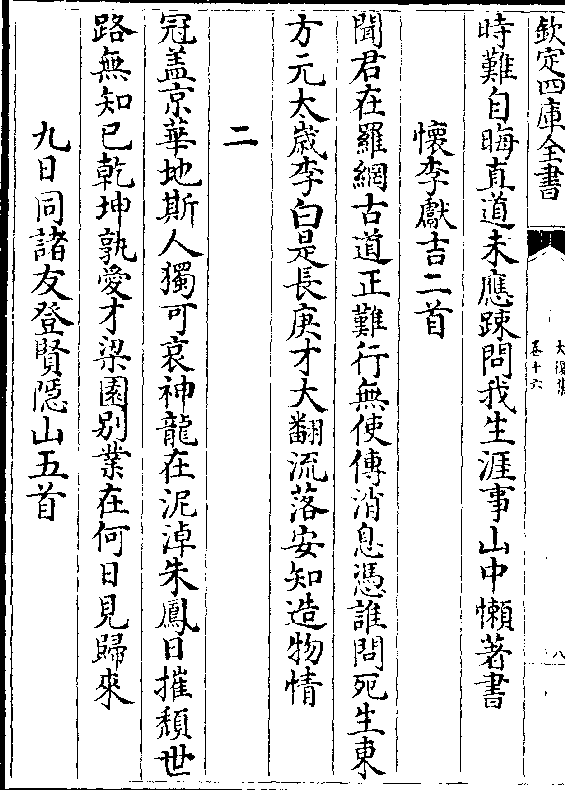 欽定四庫全書
大復集
卷十六
八
時難自晦直道未應踈問我生涯事山中懶著書
懷李獻吉二首
聞君在羅網古道正難行無使傳消息憑誰問死生東
方元太歲李白是長庚才大翻流落安知造物情
二
冠盖京華地斯人獨可哀神龍在泥淖朱鳳日摧頽世
路無知已乾坤孰愛才梁園别業在何日見歸來
九日同諸友登賢隱山五首